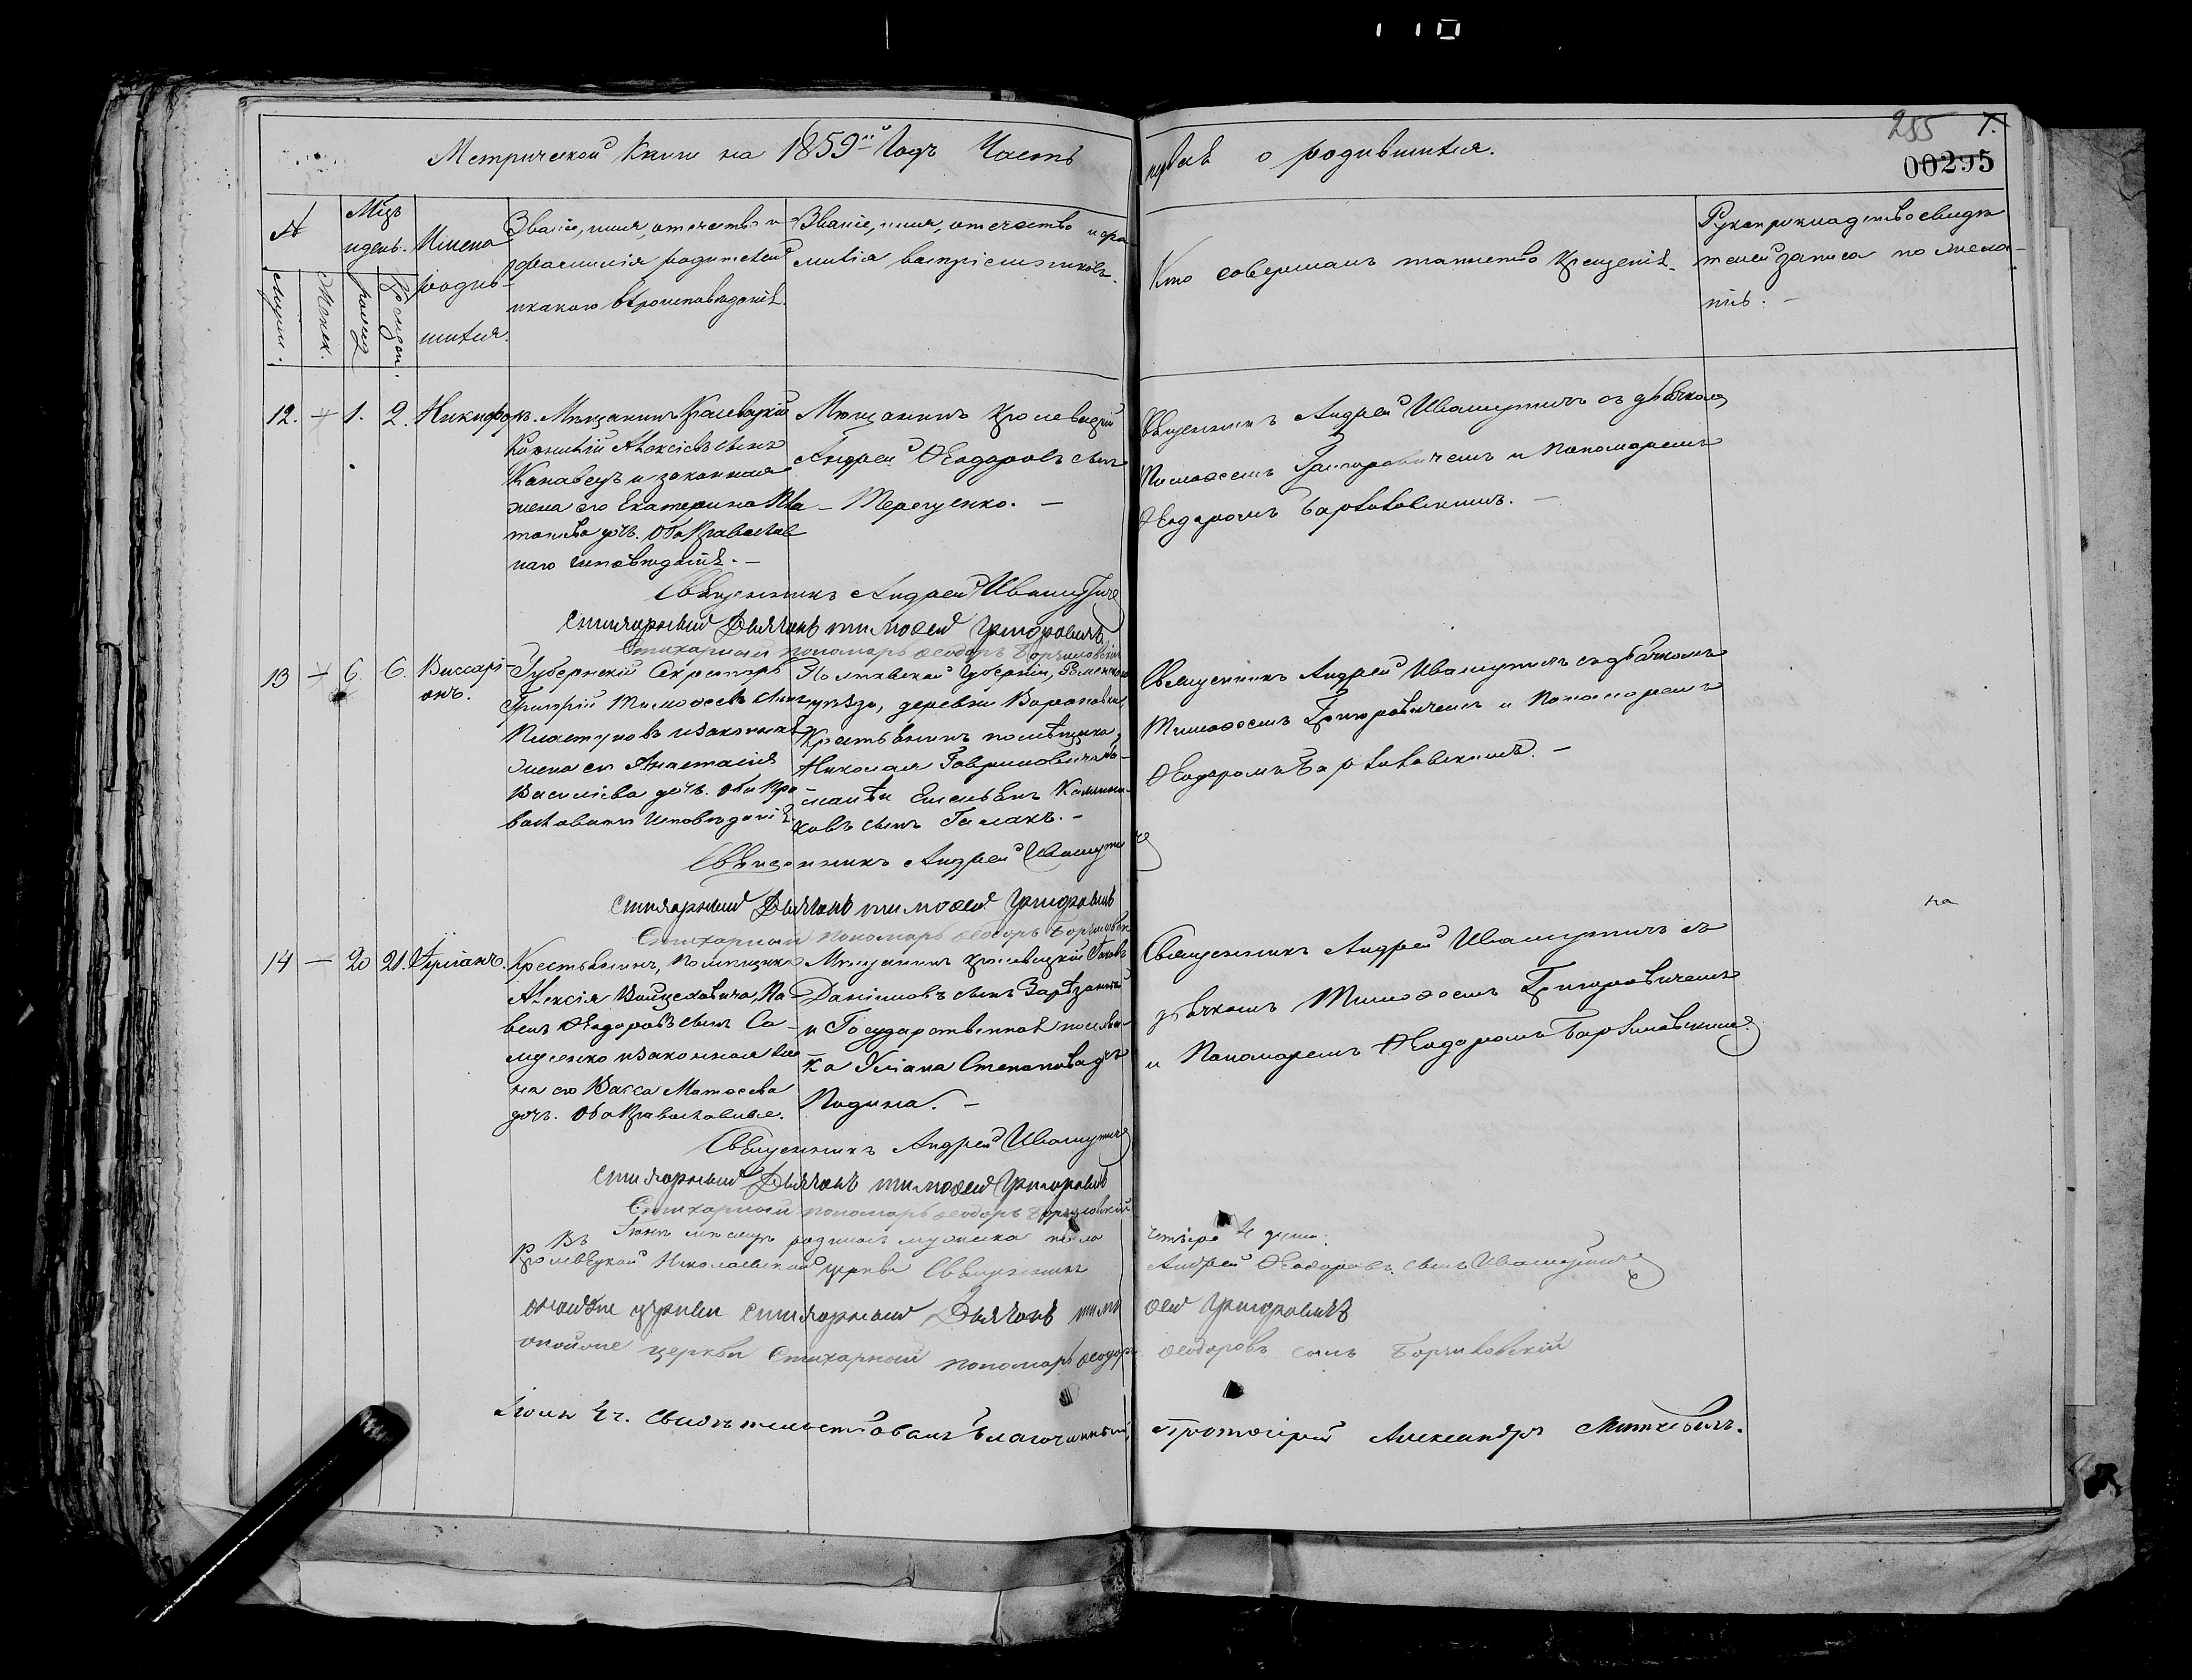 110
Метрической Книги на 1859й Годъ Часть первая о родившихся.
255 7.
00295
№
Мцъ и день.
Имена родив-
шихся.
Званіе, имя, отчество и
фамилія родителей
и какого вѣроисповѣданія.
Званіе, имя, отчество и фа-
милія воспріемниковъ.
Кто совершалъ таинство крещенія.
Рукоприкладство свидѣ
телей записи по жела-
нію. -
Мужеск.
Женск.
рожден.
крещен.
12. - 1. 2. Никифоръ.
Мѣщанинъ Кролевецкій
Корнилій Алексіевъ сынъ
и законная
жена его Екатерина
дочь. Оба Православ
наго исповѣданія. -
Мѣщанинъ Кролевецкій
Андрей Ѳеодоровъ сынъ
- Терещенко. -
Священникъ Андрей Ивашутичъ съ дьячкомъ
Тимоѳеемъ Григоровичемъ и Пономаремъ
Ѳеодоромъ
Священникъ Андрей Ивашутичъ
Стихарный Дьячокъ тимоѳей Григоровичъ
Стихарный пономарь ѳеодоръ
13 - 6. 6. Виссарі-
онъ.
Губернскій Секретарь
Григорій Тимоѳеевъ сынъ
Пластуновъ и законная
жена его Анастасія
Василіева дочь. оба Пра-
вославнаго исповѣданія.
Полтавской Губерніи, Роменскаго
уѣзда, деревни
Крестьянинъ помѣщика
Николая Гавриловича
Емельянъ
сынъ
Священникъ Андрей Ивашутичъ съ дьячкомъ
Тимоѳеемъ Григоровичемъ и Пономаремъ
Ѳеодоромъ
Священникъ Андрей Ивашутичъ
Стихарный Дьячокъ тимоѳей Григоровичъ
Стихарный пономарь ѳеодоръ
на
14 - 20 21.
Крестьянинъ, Помѣщика
Алексія Войцеховича, Па-
велъ Ѳеодоровъ сынъ Са-
мусенко и законная же
на его Васса Матѳеева
дочь. Оба Православные.
Мѣщанинъ Кролевецкій Іаковъ
Даніиловъ сынъ
и Государственная поселян-
ка Уліана Степанова дочь
Подина. -
Священникъ Андрей Ивашутичъ съ
дьячкомъ Тимоѳеемъ Григоровичемъ
и Пономаремъ Ѳеодоромъ
Священникъ Андрей Ивашутичъ
Стихарный Дьячокъ тимоѳей Григоровичъ
Стихарный пономарь ѳеодоръ
Въ Іюнѣ мѣсяцѣ родилось мужеска пола четыре 4 души.
Кролевецкой Николаевской церкви Священникъ Андрей Ѳеодоровъ сынъ Ивашутичъ
оной же церкви Стихарный Дьячокъ тимоѳей Григоровичъ
оной же церкви Стихарный пономарь ѳеодоръ ѳеодоровъ сынъ
свидѣтельствовалъ Благочинный, Протоіерей Александръ Миткевичъ.